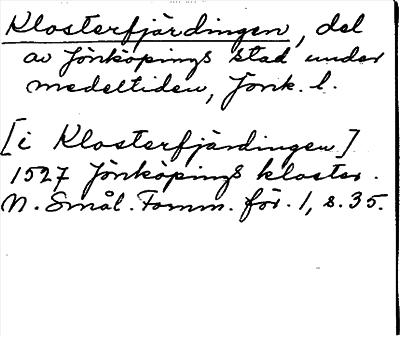 Klosterfjärdingen, del
av Jönköpings stad under
medeltiden, Jönk. l.
[i Klosterfjärdingen]
1527 Jönköpings kloster.
N. Smål. Fornm. för. 1, s. 35.